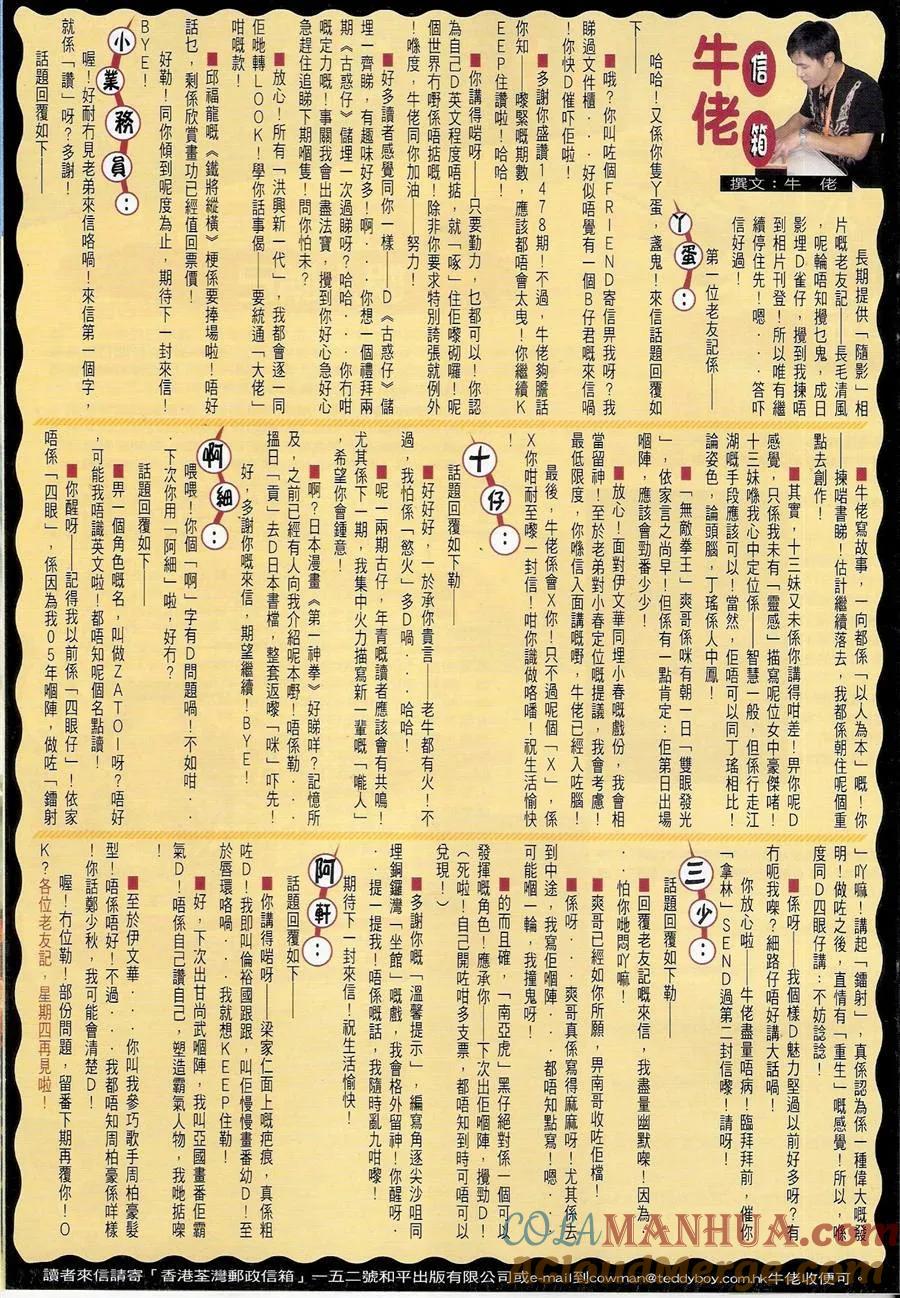 牛佬
信箱
撰文：牛 佬
長期提供「隨影」相
片嘅老友記——長毛清風
，呢輪唔知攪乜鬼，成日
影埋D雀仔，攪到我揀唔
到相片刊登！所以唯有繼
續停住先！嗯...答吓
信好過！
第一位老友記係——
丫蛋：
哈哈！又係你隻丫蛋，盞鬼！來信話題回覆如
下——
■哦？你叫咗個FRIEND寄信畀我呀？我
睇過文件櫃...好似唔覺有一個B仔君嘅來信喎
！你快D催吓佢啦！
■多謝你盛讚1478期！不過，牛佬夠膽話
你知——嚟緊嘅期數，應該都唔會太曳！你繼續K
EEP住讚啦！哈哈！
■你講得啱呀——只要勤力，乜都可以！你認
為自己D英文程度唔掂，就「啄」住佢嚟砌囉！呢
個世界冇嘢係唔掂嘅！除非你要求特別誇張就例外
！喺度，牛佬同你加油——努力！
■好多讀者感覺同你一樣——D《古惑仔》儲
埋一齊睇，有趣味好多！啊...你想一個禮拜兩
期《古惑仔》儲埋一次過睇呀？哈哈...你冇咁
嘅定力嘅！事關我會出盡法寶，攪到你好心急好心
急趕住追睇下期嗰隻！問你怕未？
■放心！所有「洪興新一代」，我都會逐一同
佢哋轉LOOK！學你話事偈——要統通「大佬」
咁嘅款！
■邱福龍嘅《鐵將縱橫》梗係要捧場啦！唔好
話乜，剩係欣賞畫功已經值回票價！
好勒！同你傾到呢度為止，期待下一封來信！
BYE！
小業務員：
喔！好耐冇見老弟來信咯喎！來信第一個字，
就係「讚」呀？多謝！
話題回覆如下——
■牛佬寫故事，一向都係「以人為本」嘅！你
——揀啱書睇！估計繼續落去，我都係朝住呢個重
點去創作！
■其實，十三妹又未係你講得咁差！畀你呢D
感覺，只係我未有「靈感」描寫呢位女中豪傑啫！
十三妹喺我心中定位係——智慧一般，但係行走江
湖嘅手段應該可以！當然，佢唔可以同丁瑤相比！
論姿色，論頭腦，丁瑤係人中鳳！
■「無敵拳王」爽哥係咪有朝一日「雙眼發光
」，依家言之尚早！但係有一點肯定：佢第日出場
嗰陣，應該會勁番少少！
■放心！面對伊文華同埋小春嘅戲份，我會相
當留神！至於老弟對小春定位嘅提議，我會考慮！
最低限度，你喺信入面講嘅嘢，牛佬已經入咗腦！
最後，牛佬係會X你！只不過呢個「X」，係
X你咁耐至嚟一封信！咁你識做咯噃！祝生活愉快
！
十仔：
話題回覆如下勒——
■好好好，一於承你貴言——老牛都有火！不
過，我怕係「慾火」多D喎...哈哈！
■呢一兩期古仔，年青嘅讀者應該會有共鳴！
尤其係下一期，我集中火力描寫新一輩嘅「嚨人」
，希望你會鍾意！
■啊？日本漫畫《第一神拳》好睇咩？記憶所
及，之前已經有人向我介紹呢本嘢！唔係勒...
搵日「貢」去D日本書檔，整套返嚟「咪」吓先！
好，多謝你嘅來信，期望繼續！BYE！
啊細：
喂喂！你個「啊」字有D問題喎！不如咁..
．下次你用「阿細」啦，好冇？
話題回覆如下——
■畀一個角色嘅名，叫做ZATOI呀？唔好
，可能我唔識英文啦！都唔知呢個名點讀！
■你醒呀——記得我以前係「四眼仔」！依家
唔係「四眼」，係因為我05年嗰陣，做咗「鐳射
」吖嘛！講起「鐳射」，真係認為係一種偉大嘅發
明！做咗之後，直情有「重生」嘅感覺！所以，喺
度同D四眼仔講：不妨諗諗！
■係呀——我個樣D魅力堅過以前好多呀？有
冇呃我㗎？細路仔唔好講大話喎！
你放心啦！牛佬盡量唔病！臨拜拜前，催你
「拿林」SEND過第二封信嚟！請呀！
三少：
話題回覆如下勒——
■回覆老友記嘅來信，我盡量幽默㗎！因為.
．怕你哋悶吖嘛！
■爽哥已經如你所願，畀南哥收咗佢檔！
■係呀...爽哥真係寫得麻麻呀！尤其係去
到中途，我寫佢嗰陣...都唔知點寫！嗯...
可能嗰一輪，我撞鬼呀！
■的而且確，「南亞虎」黑仔絕對係一個可以
發揮嘅角色！應承你——下次出佢嗰陣，攪勁D！
（死啦！自己開咗咁多支票，都唔知到時可唔可以
兌現！）
■多謝你嘅「溫馨提示」，編寫角逐尖沙咀同
埋銅鑼灣「坐館」嘅戲，我會格外留神！你醒呀..
．提一提我！唔係嘅話，我隨時亂九咁嚟！
期待下一封來信！祝生活愉快！
阿軒：
話題回覆如下——
■你講得啱呀——梁家仁面上嘅疤痕，真係粗
咗D！我即叫倫裕國跟跟，叫佢慢慢畫番幼D！至
於唇環咯喎...我就想KEEP住勒！
■好，下次出甘尚武嗰陣，我叫亞國畫番佢霸
氣D！唔係自己讚自己，塑造霸氣人物，我哋掂㗎
！
■至於伊文華...你叫我參巧歌手周柏豪髮
型！唔係唔好！不過...我都唔知周柏豪係咩樣
！你話鄭少秋，我可能會清楚D！
喔！冇位勒！部份問題，留番下期再覆你！O
K？各位老友記，星期四再見啦！
讀者來信請寄「香港荃灣郵政信箱」一五二號和平出版有限公司或e-mail到cowman@teddyboy.com.hk牛佬收便可。
COLAMANHUA.COM